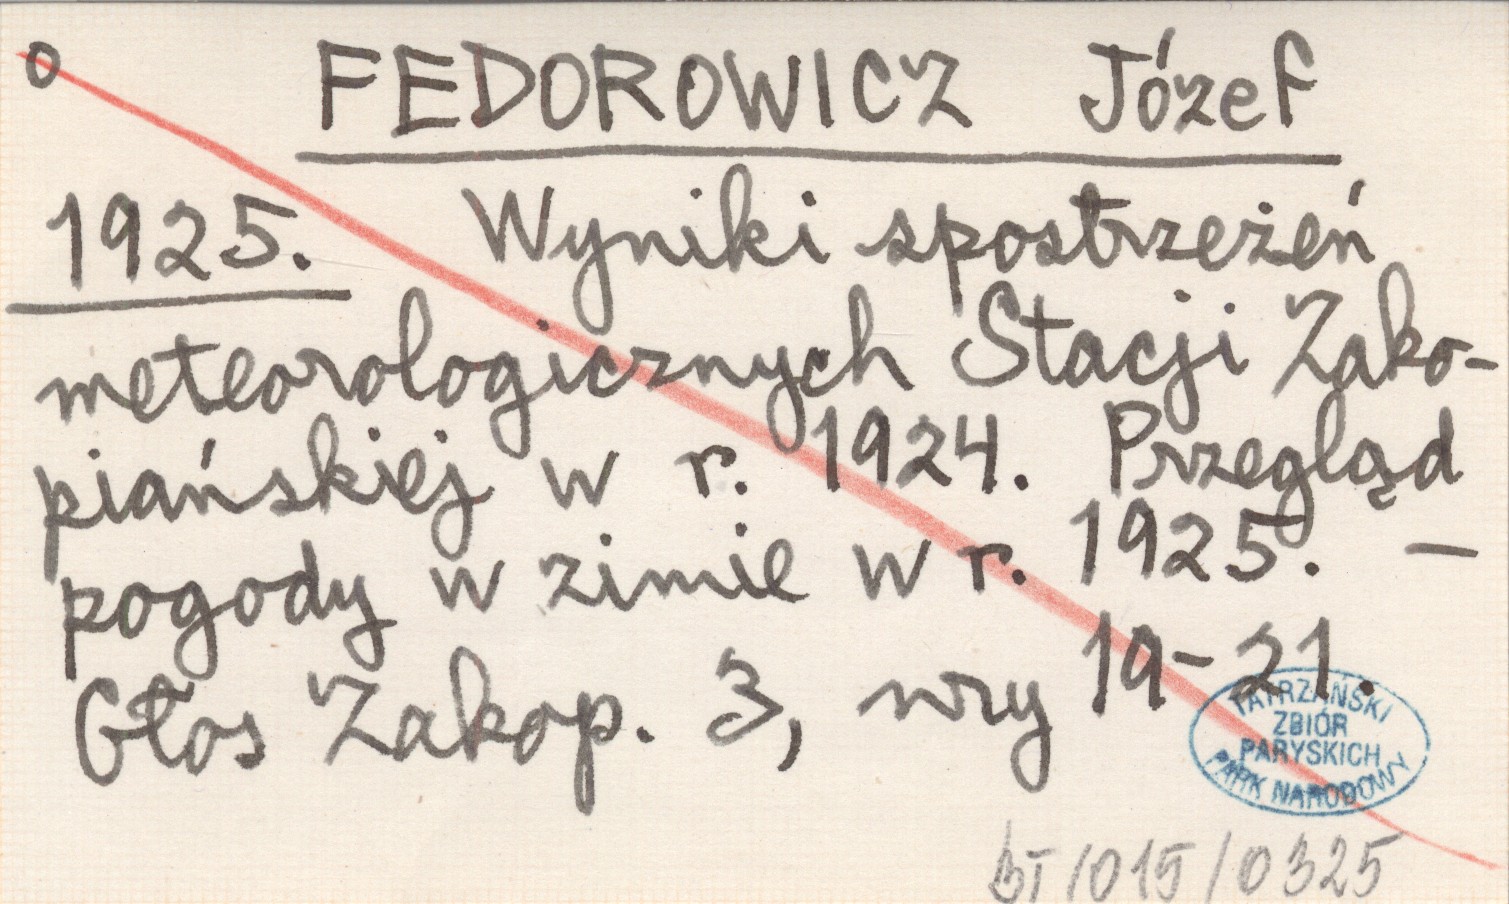 o
FEDOROWICZ Józef
1925. Wyniki spostrzeżeń
meteorologicznych Stacji Zako-
piańskiej w r. 1924. Przegląd
pogody w zimie w r. 1925. –
Głos Zakop. 3, nry 19-21.
TATRZAŃSKI
ZBIÓR
PARYSKICH
PARK NARODOWY
BT/015/0325